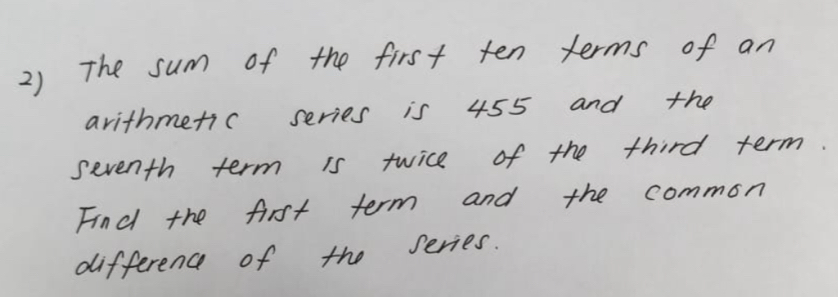 2) The sum of the first ten terms of an
arithmetic series is 455 and the
seventh term is twice of the third term.
Find the first term and the common
difference of the series.